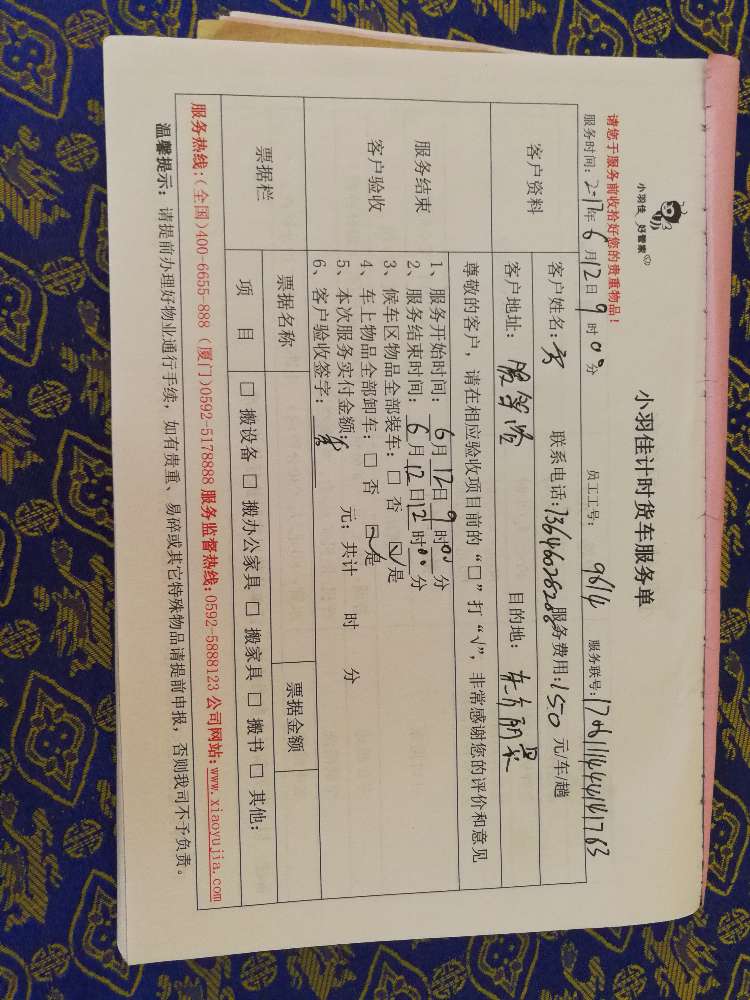 小羽佳 好管家
小羽佳计时货车服务单
请您于服务前收拾好您的贵重物品！
服务时间：2017年 6月12日 9时00分 员工工号： 9614 服务联号：
客户资料
客户姓名： 联系电话： 服务费用：150 元/车/趟
客户地址： 目的地：
服务结束
客户验收
尊敬的客户，请在相应验收项目前的“□”打“√”，非常感谢您的评价和意见
1、服务开始时间： 6月12日9时00分
2、服务结束时间： 6月12日12时00分
3、候车区物品全部装车：□ 否 ☑ 是
4、车上物品全部卸车：□ 否 ☑ 是
5、本次服务实付金额： 元；共计 时 分
6、客户验收签字：
票据栏
票据名称 票据金额
项 目 □ 搬设备 □ 搬办公家具 □ 搬家具 □ 搬书 □ 其他：
服务热线：(全国)400-6655-888 (厦门)0592-5178888 服务监督热线：0592-5888123 公司网站：www.xiaoyujia.com
温馨提示：请提前办理好物业通行手续，如有贵重、易碎或其它特殊物品请提前申报，否则我司不予负责。